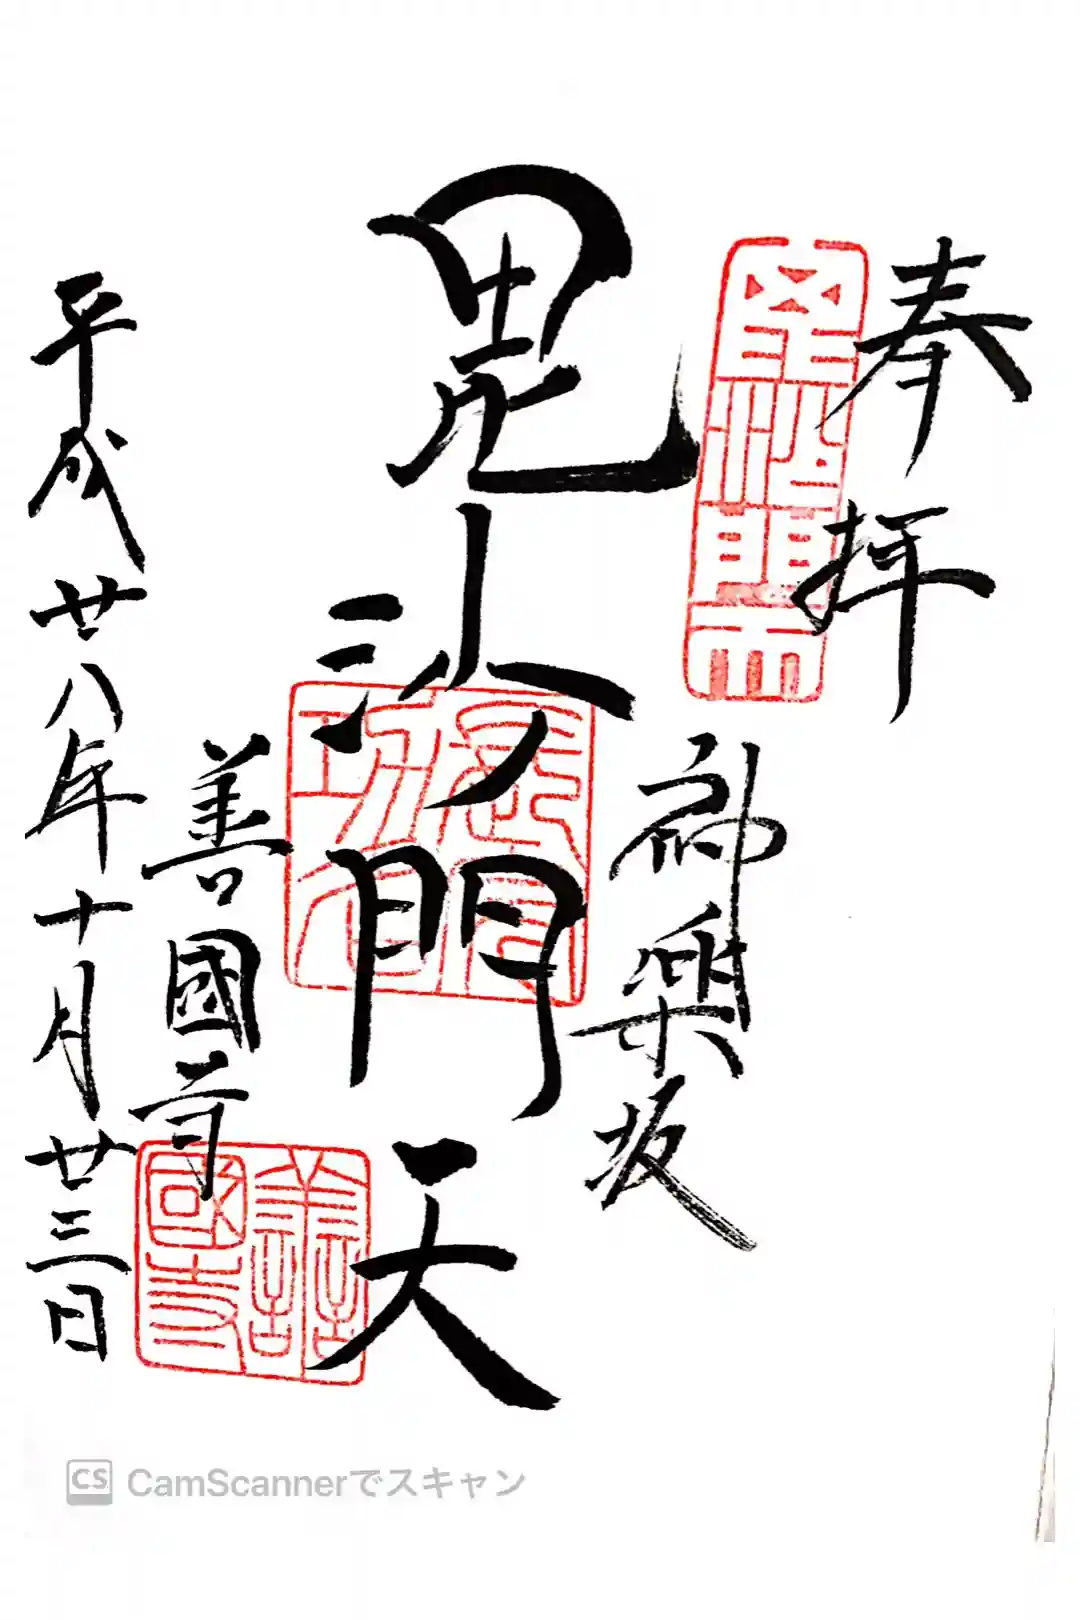 奉拝
神楽坂
毘沙門天
善國寺
平成廿八年十月廿三日
善國寺
CS CamScannerでスキャン